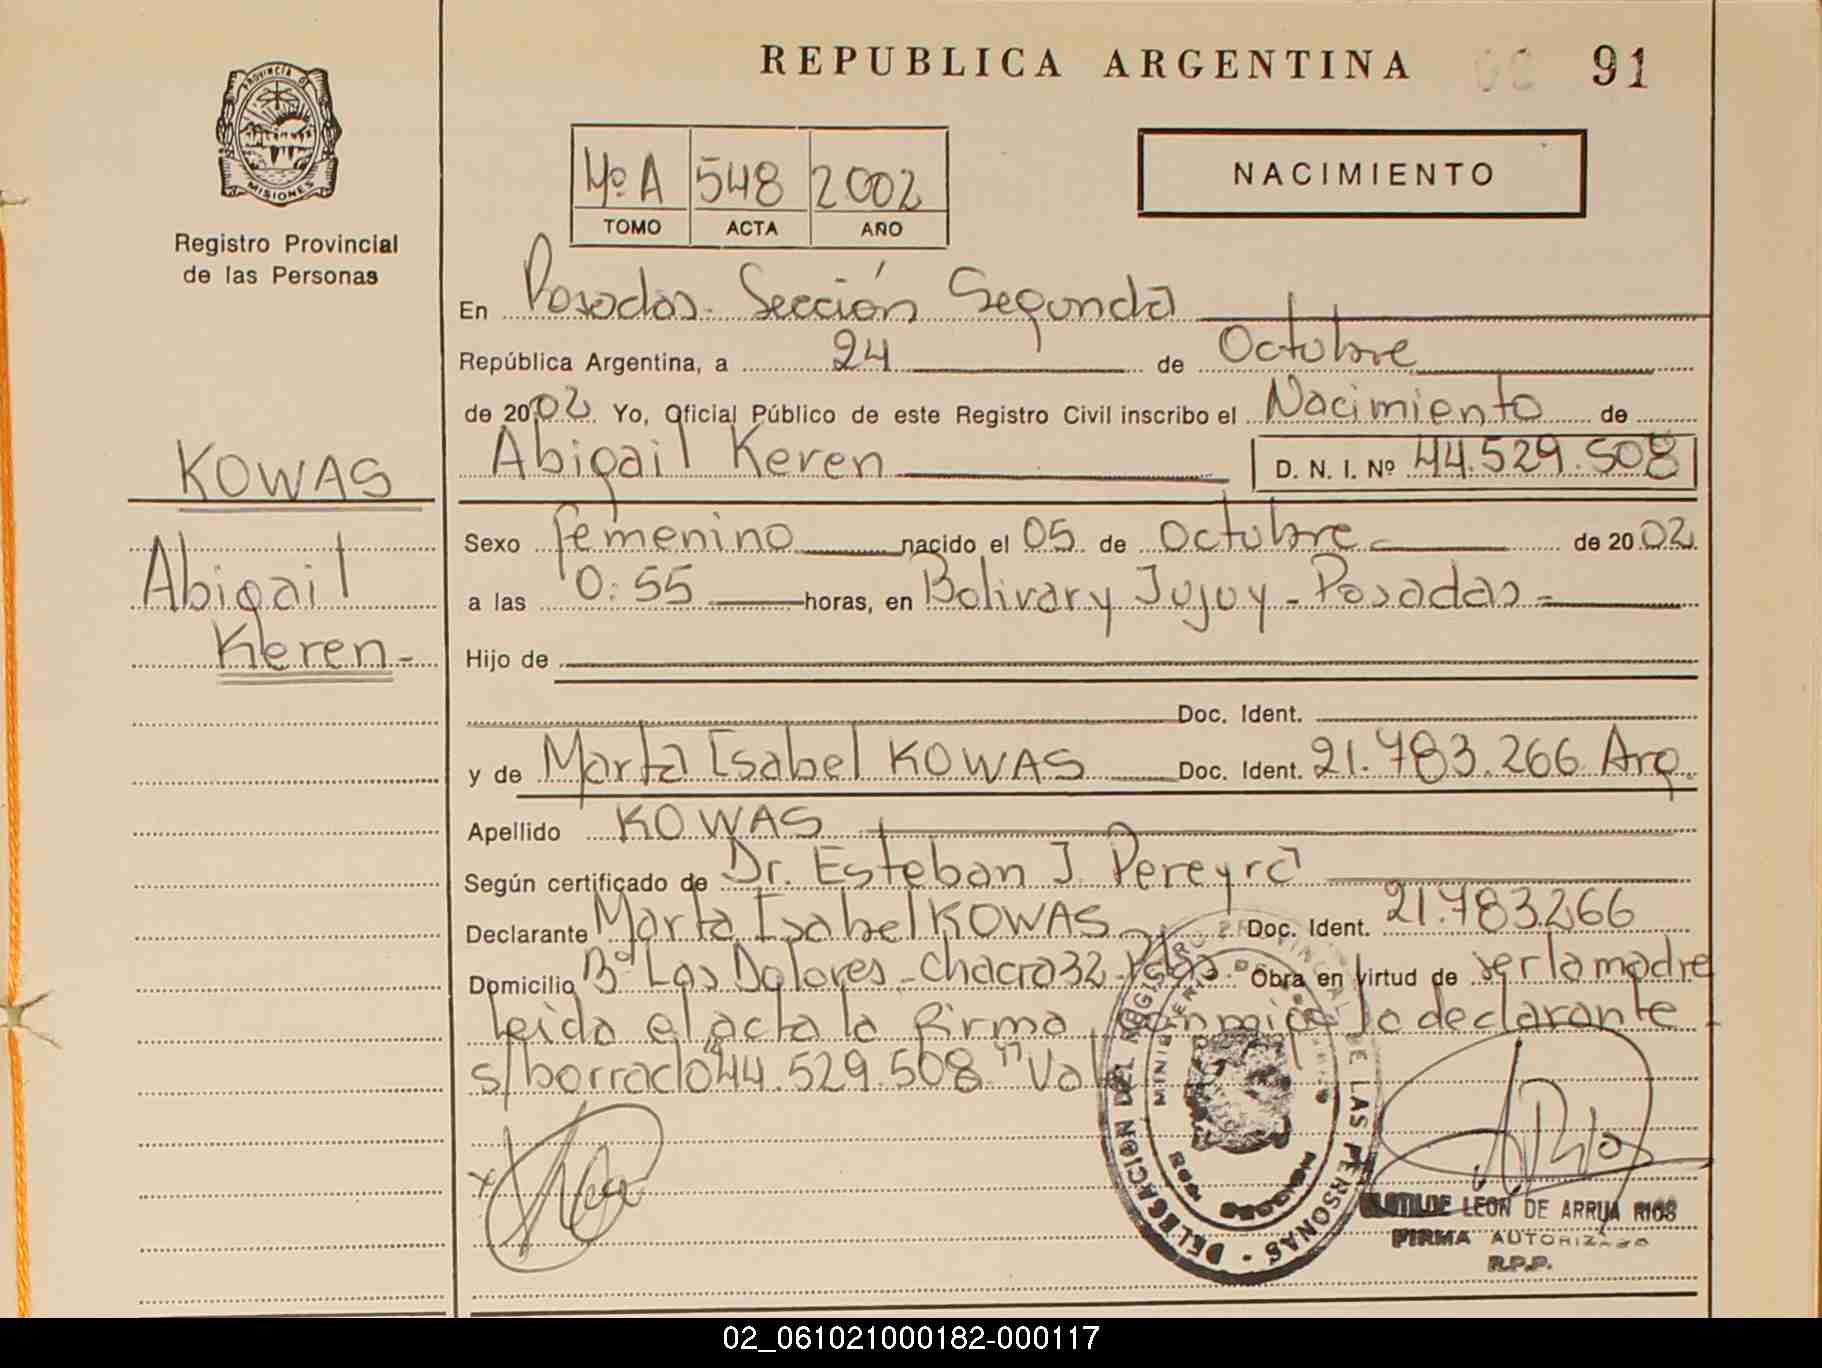 REPUBLICA ARGENTINA
91
PROVINCIA DE
MISIONES
Registro Provincial
de las Personas
4º A 548 2002
TOMO ACTA AÑO
NACIMIENTO
En Posadas - Sección Segunda
República Argentina, a 24 de Octubre
de 2002 Yo, Oficial Público de este Registro Civil inscribo el Nacimiento de
Abigail Keren D. N. I. Nº 44.529.508
KOWAS
Abigail
Keren-
Sexo femenino nacido el 05 de Octubre de 2002
a las 0:55 horas, en Bolivar y Jujuy - Posadas -
Hijo de
Doc. Ident.
y de Marta Isabel KOWAS Doc. Ident. 21.783.266 Arg.
Apellido KOWAS
Según certificado de Dr. Esteban J. Pereyra
Declarante Marta Isabel KOWAS Doc. Ident. 21.783.266
Domicilio Bº Los Dolores - Chacra 32 - Pdas. Obra en virtud de ser la madre
Leida el acta la firma conmigo la declarante -
s/borrado "44.529.508" Vale
DELEGACION DEL REGISTRO PROVINCIAL DE LAS PERSONAS
MINISTERIO DE
MISIONES
CLOTILDE LEON DE ARRUA RIOS
FIRMA AUTORIZADA
R.P.P.
02_061021000182-000117